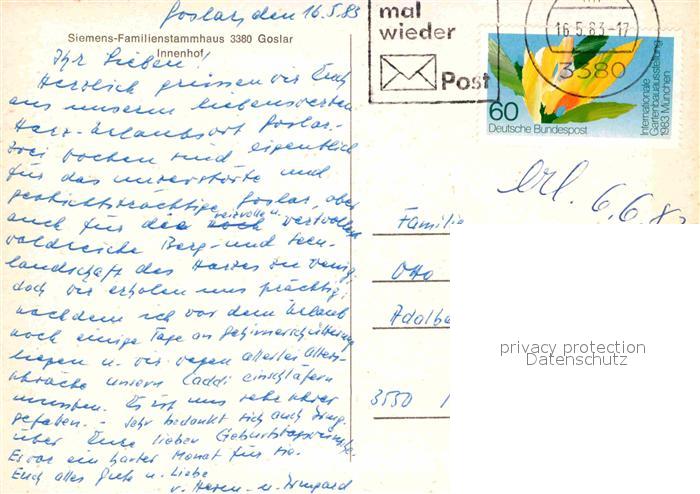 Goslar, den 16.5.83
Siemens-Familienstammhaus 3380 Goslar
Innenhof
Ihr Lieben!
Herzlich grüssen wir Euch
aus unserem liebenswerten
Harz-Urlaubsort Goslar.
Zwei Wochen sind eigentlich
für das unzerstörte und
geschichtsträchtige Goslar, aber
auch für die reizvolle u. wertvolle
waldreiche Berg- und Seen-
landschaft des Harzes zu wenig;
doch wir erholen uns prächtig,
nachdem ich vor dem Urlaub
noch einige Tage an Gehirnerschütterung
liegen u. wir wegen allerlei Alters-
schwäche unsern Caddi einschläfern
mussten. Es ist uns sehr schwer
gefallen. - Sehr bedankt sich auch Irmg.
über Eure lieben Geburtstagswünsche
Es war ein harter Monat für sie.
Euch alles Gute u. Liebe
v. u. Irmgard
mal
wieder
Post
16.5.83-17
3380
60
Deutsche Bundespost
Internationale
Gartenbauausstellung
1983 München
erl. 6.6.83
Familie
Otto
Adalbe
3550
privacy protection
Datenschutz